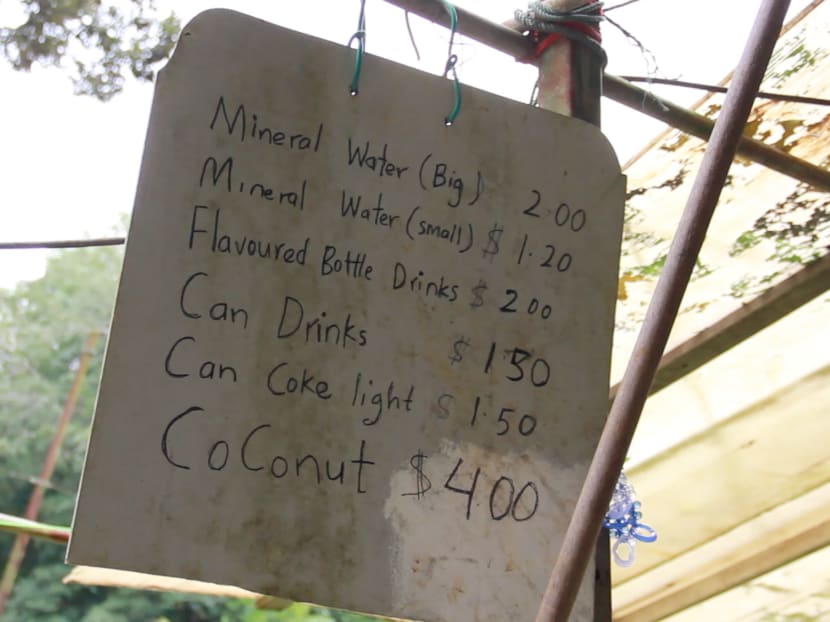 Mineral Water (Big) 2.00
Mineral Water (small) $ 1.20
Flavoured Bottle Drinks $ 200
Can Drinks $ 130
Can Coke light $ 1.50
Coconut $ 400